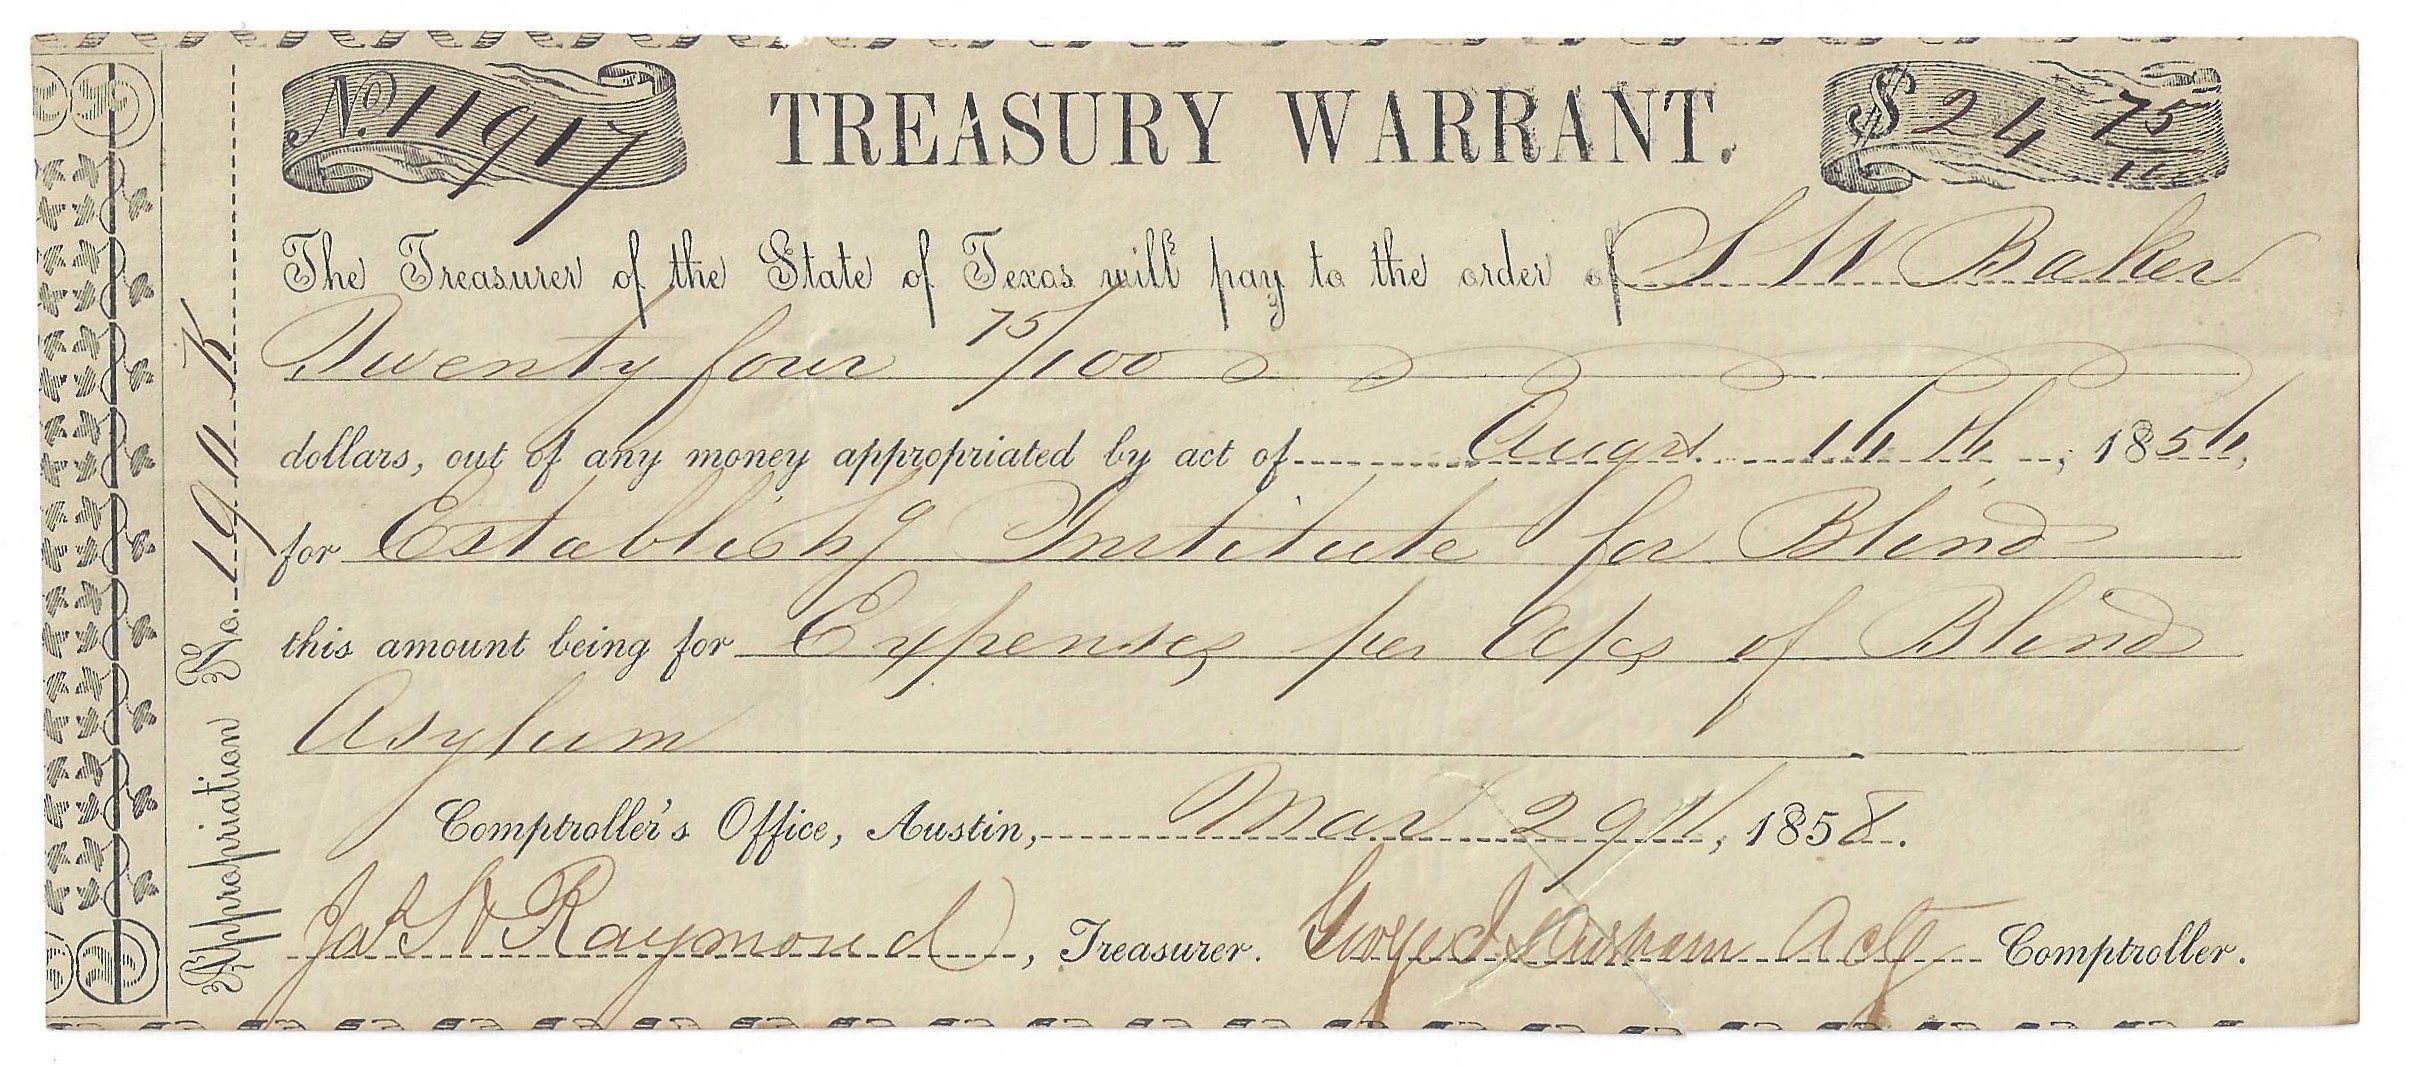 No. 11917 TREASURY WARRANT. $24 75/100
The Treasurer of the State of Texas will pay to the order of S W Baker
Twenty four 75/100
dollars, out of any money appropriated by act of Augst 16th, 1856,
for Establishg Institute for Blind
this amount being for Expenses per a/cs of Blind
Asylum
Comptroller's Office, Austin, Mar 29th, 1858.
Jas H Raymond, Treasurer. George J Durham Actg Comptroller.
Appropriation No. 190 K